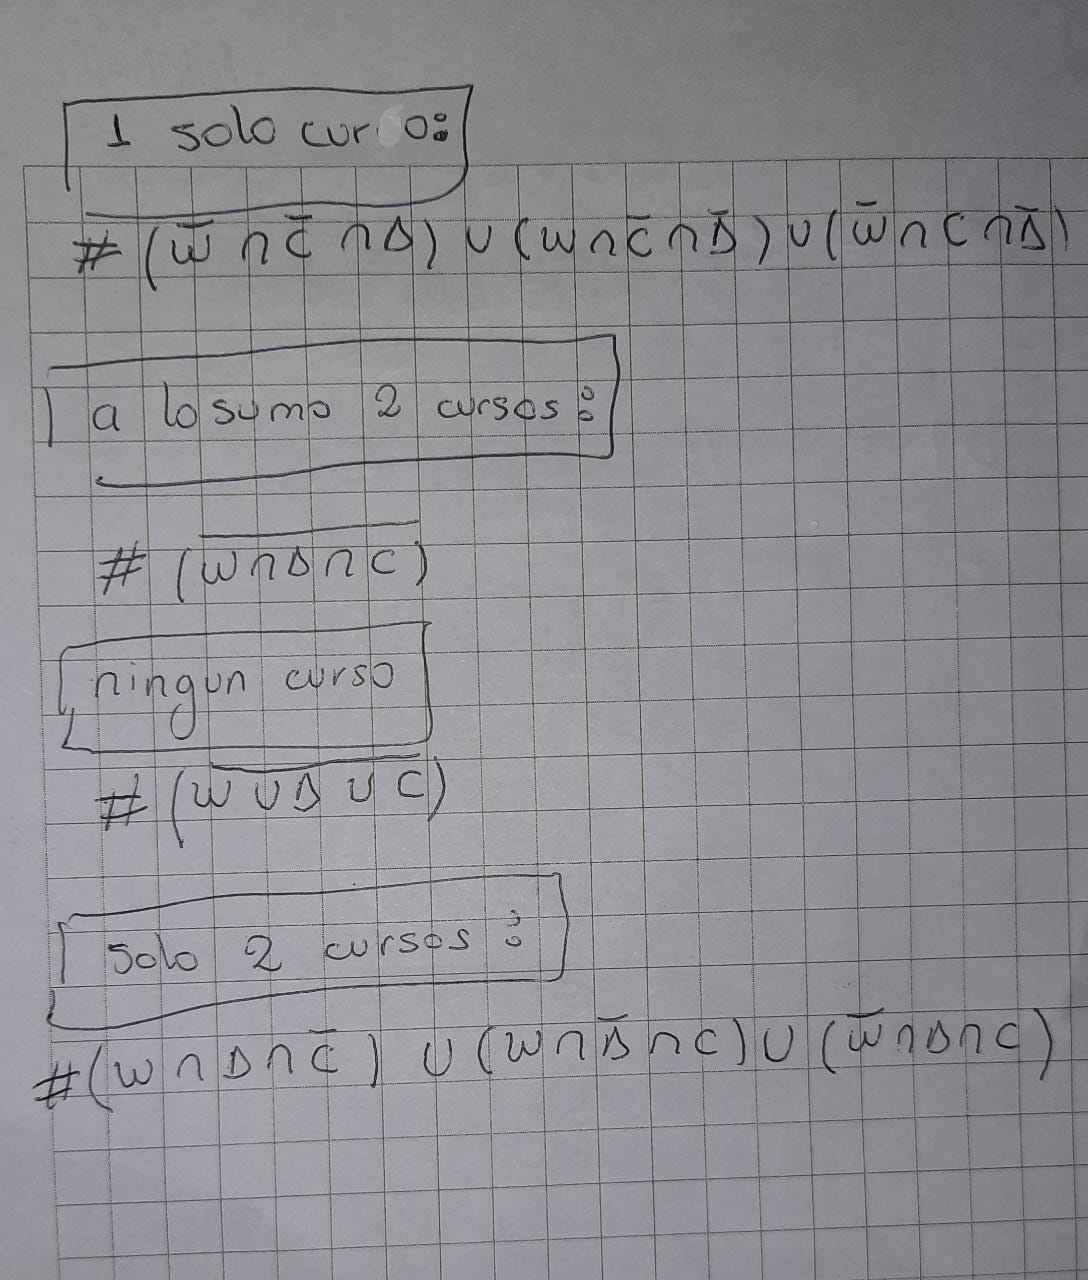 1 solo curso:
# (W̅ ∩ C̅ ∩ Δ) ∪ (W ∩ C̅ ∩ Δ̅) ∪ (W̅ ∩ C ∩ Δ̅)
a lo sumo 2 cursos:
# (W̅ ̅∩̅ ̅Δ̅ ̅∩̅ ̅C̅)
ningun curso
# (W̅ ̅∪̅ ̅Δ̅ ̅∪̅ ̅C̅)
solo 2 cursos:
# (W ∩ Δ ∩ C̅) ∪ (W ∩ Δ̅ ∩ C) ∪ (W̅ ∩ Δ ∩ C)